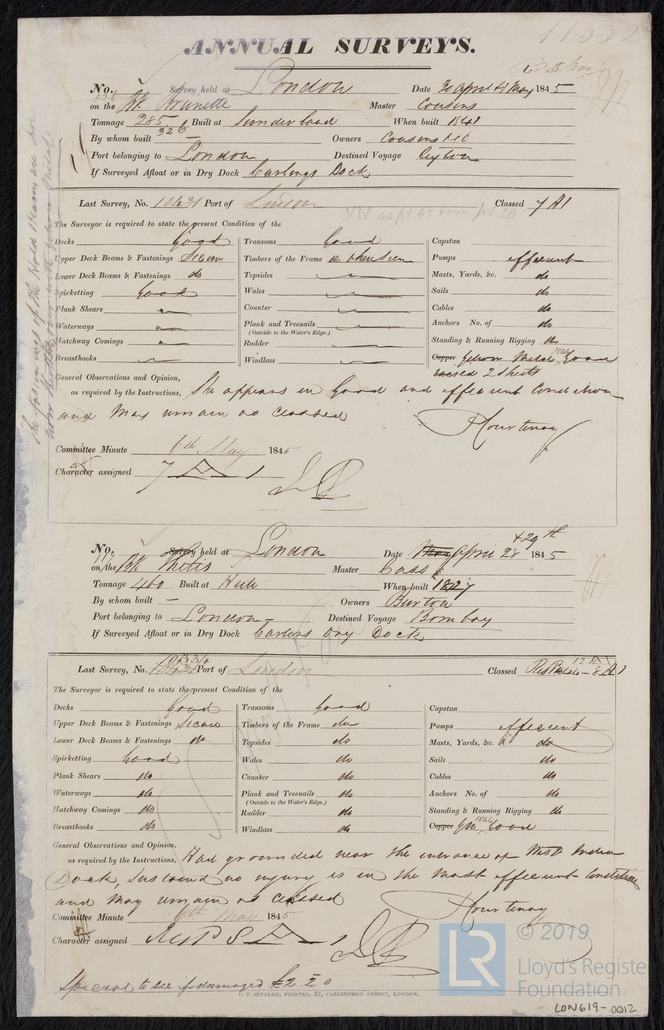 11532
ANNUAL SURVEYS.
No. Survey held at London Date 30 April & 4 May 1845
on the Bk Brunette Master Cousens
Tonnage 285 326 Built at Sunderland When built 1841
By whom built — Owners Cousens & Co
Port belonging to London Destined Voyage Ceylon
If Surveyed Afloat or in Dry Dock Curlings Dock
Last Survey, No. 10431 Port of London Classed 7 A1
The Surveyor is required to state the present Condition of the
Decks Good Transoms Good Capstan
Upper Deck Beams & Fastenings Secure Timbers of the Frame Pumps efficient
Lower Deck Beams & Fastenings do Topsides Masts, Yards, &c. do
Spirketting Good Wales Sails do
Plank Shears Counter Cables do
Waterways Plank and Treenails (Outside to the Water's Edge.) Anchors No. of do
Hatchway Comings Rudder Standing & Running Rigging do
Breasthooks Windlass Copper Yellow Metal 1844 Good
2 sheets
General Observations and Opinion,
as required by the Instructions, She appears in Good and efficient Condition
and May remain as classed
Courtenay
Committee Minute 6th May 1845
Character assigned 7 A 1
No. Survey held at London Date May April 28 & 29th 1845
on the Bk Thetis Master Cass
Tonnage 460 Built at Hull When built 1827
By whom built — Owners Burton
Port belonging to London Destined Voyage Bombay
If Surveyed Afloat or in Dry Dock Dry Dock
Last Survey, No. Port of London Classed
The Surveyor is required to state the present Condition of the
Decks Good Transoms Good Capstan
Upper Deck Beams & Fastenings Secure Timbers of the Frame do Pumps efficient
Lower Deck Beams & Fastenings do Topsides do Masts, Yards, &c. do
Spirketting Good Wales do Sails do
Plank Shears do Counter do Cables do
Waterways do Plank and Treenails (Outside to the Water's Edge.) do Anchors No. of do
Hatchway Comings do Rudder do Standing & Running Rigging do
Breasthooks do Windlass do Copper YM 1844 Good
General Observations and Opinion,
as required by the Instructions, Had grounded near the entrance of West India
Dock, sustained no injury is in the most efficient Condition
and May remain as classed
Courtenay
Committee Minute 6th May 1845
Character assigned
Special to see if damaged £2.2.0
C. F. SEYFANG, PRINTER, 57, FARRINGDON STREET, LONDON.
LR © 2019
Lloyd's Register
Foundation
LON619-0012